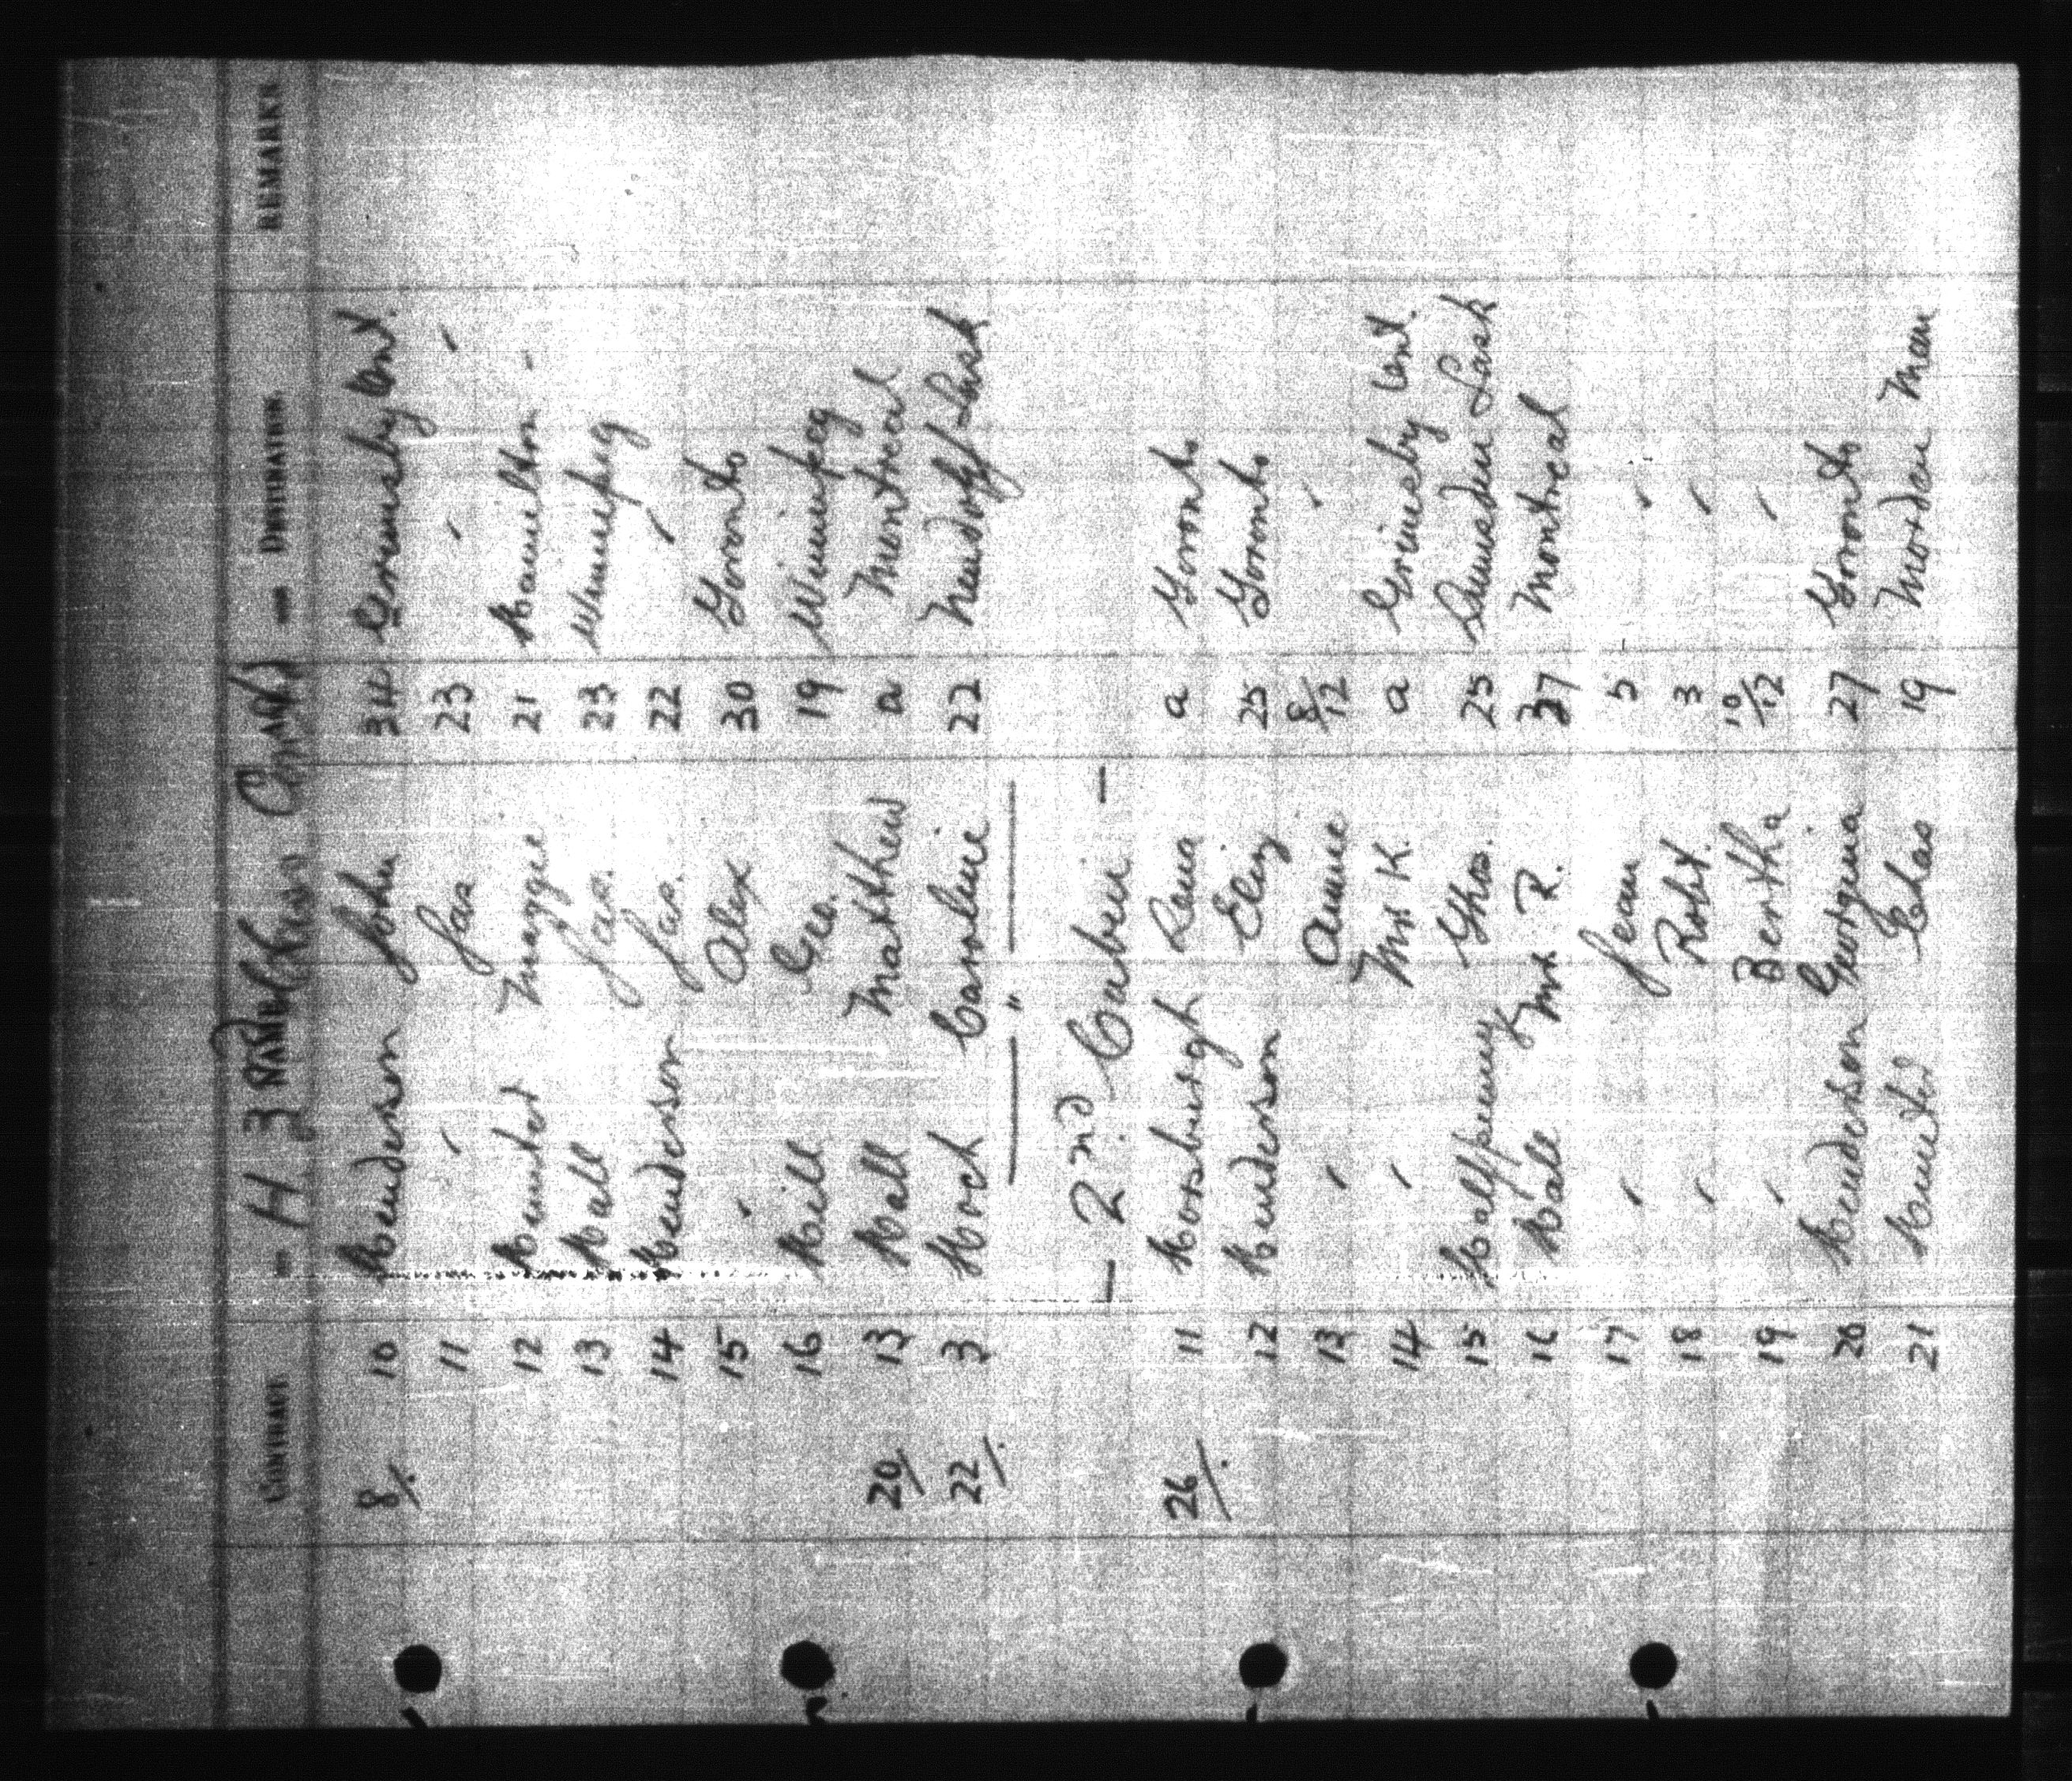 CONTRACT — H 3rd Class Contd — DESTINATION REMARKS
8/. 10 Henderson John 34 Grimsby Ont.
11 " Jas 23 " "
12 Hunter Maggie 21 Hamilton -
13 Hall Jas. 23 Winnipeg
14 Henderson Jas. 22 "
15 " Alex 30 Toronto
16 Hill Geo. 19 Winnipeg
20/ 13 Hall Matthew a Montreal
22/. 3 Hoch Caroline 22 Neudorf Sask
— " —
— 2nd Cabin —
26/. 11 Hornsburgh Lena a Toronto
12 Henderson Eliz 25 Toronto
13 " Annie 8/12 "
14 " Mrs K. a Grimsby Ont.
15 Halfpenny Thos. 25 Lumsden Sask
16 Hall Mrs R. 37 Montreal
17 " Jean 5 "
18 " Robt. 3 "
19 " Bertha 10/12 "
20 Henderson Georgina 27 Toronto
21 Hunter Chas 19 Morden Man